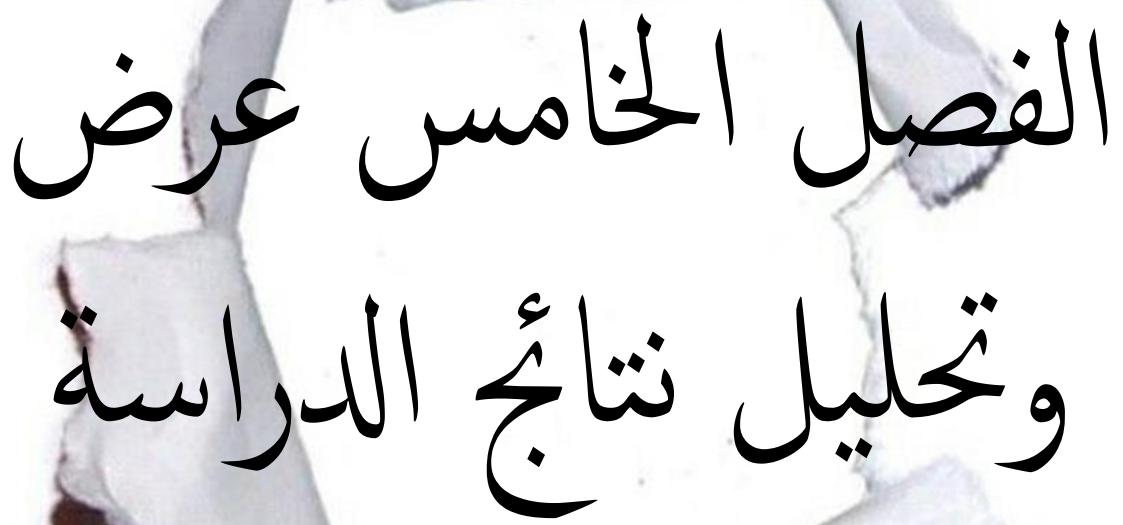 الفصل الخامس عرض
وتحليل نتائج الدراسة